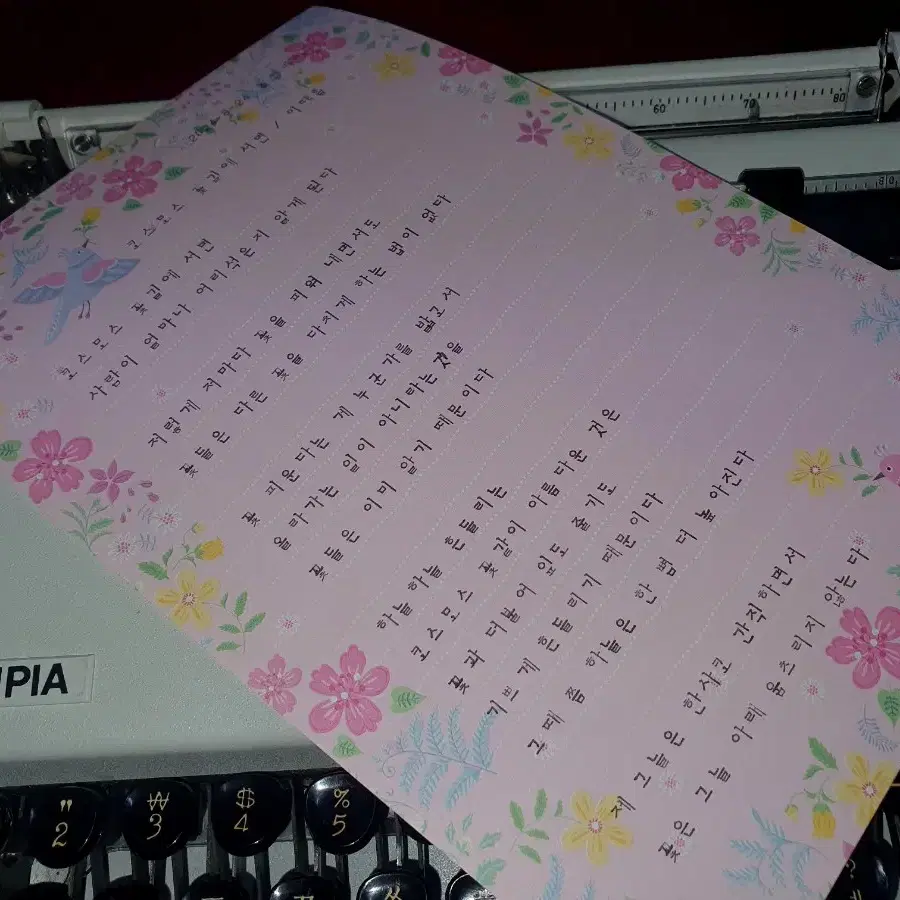 코스모스 꽃길에 서면 /
코스모스 꽃길에 서면
사람이 얼마나 어리석은지 알게 된다
저렇게 저마다 꽃을 피워 내면서도
꽃들은 다른 꽃을 다치게 하는 법이 없다
꽃 피운다는 게 누군가를 밟고서
올라가는 일이 아니라는 것을
꽃들은 이미 알기 때문이다
하늘하늘 흔들리는
코스모스 꽃같이 아름다운 것은
꽃과 더불어 잎도 줄기도
기쁘게 흔들리기 때문이다
그때 쯤 하늘은 한 뼘 더 높아진다
제 그늘은 한사코 간직하면서
꽃은 그늘 아래 움츠리지 않는다
60 70 80
80
PIA
" 2
₩ 3
$ 4
% 5